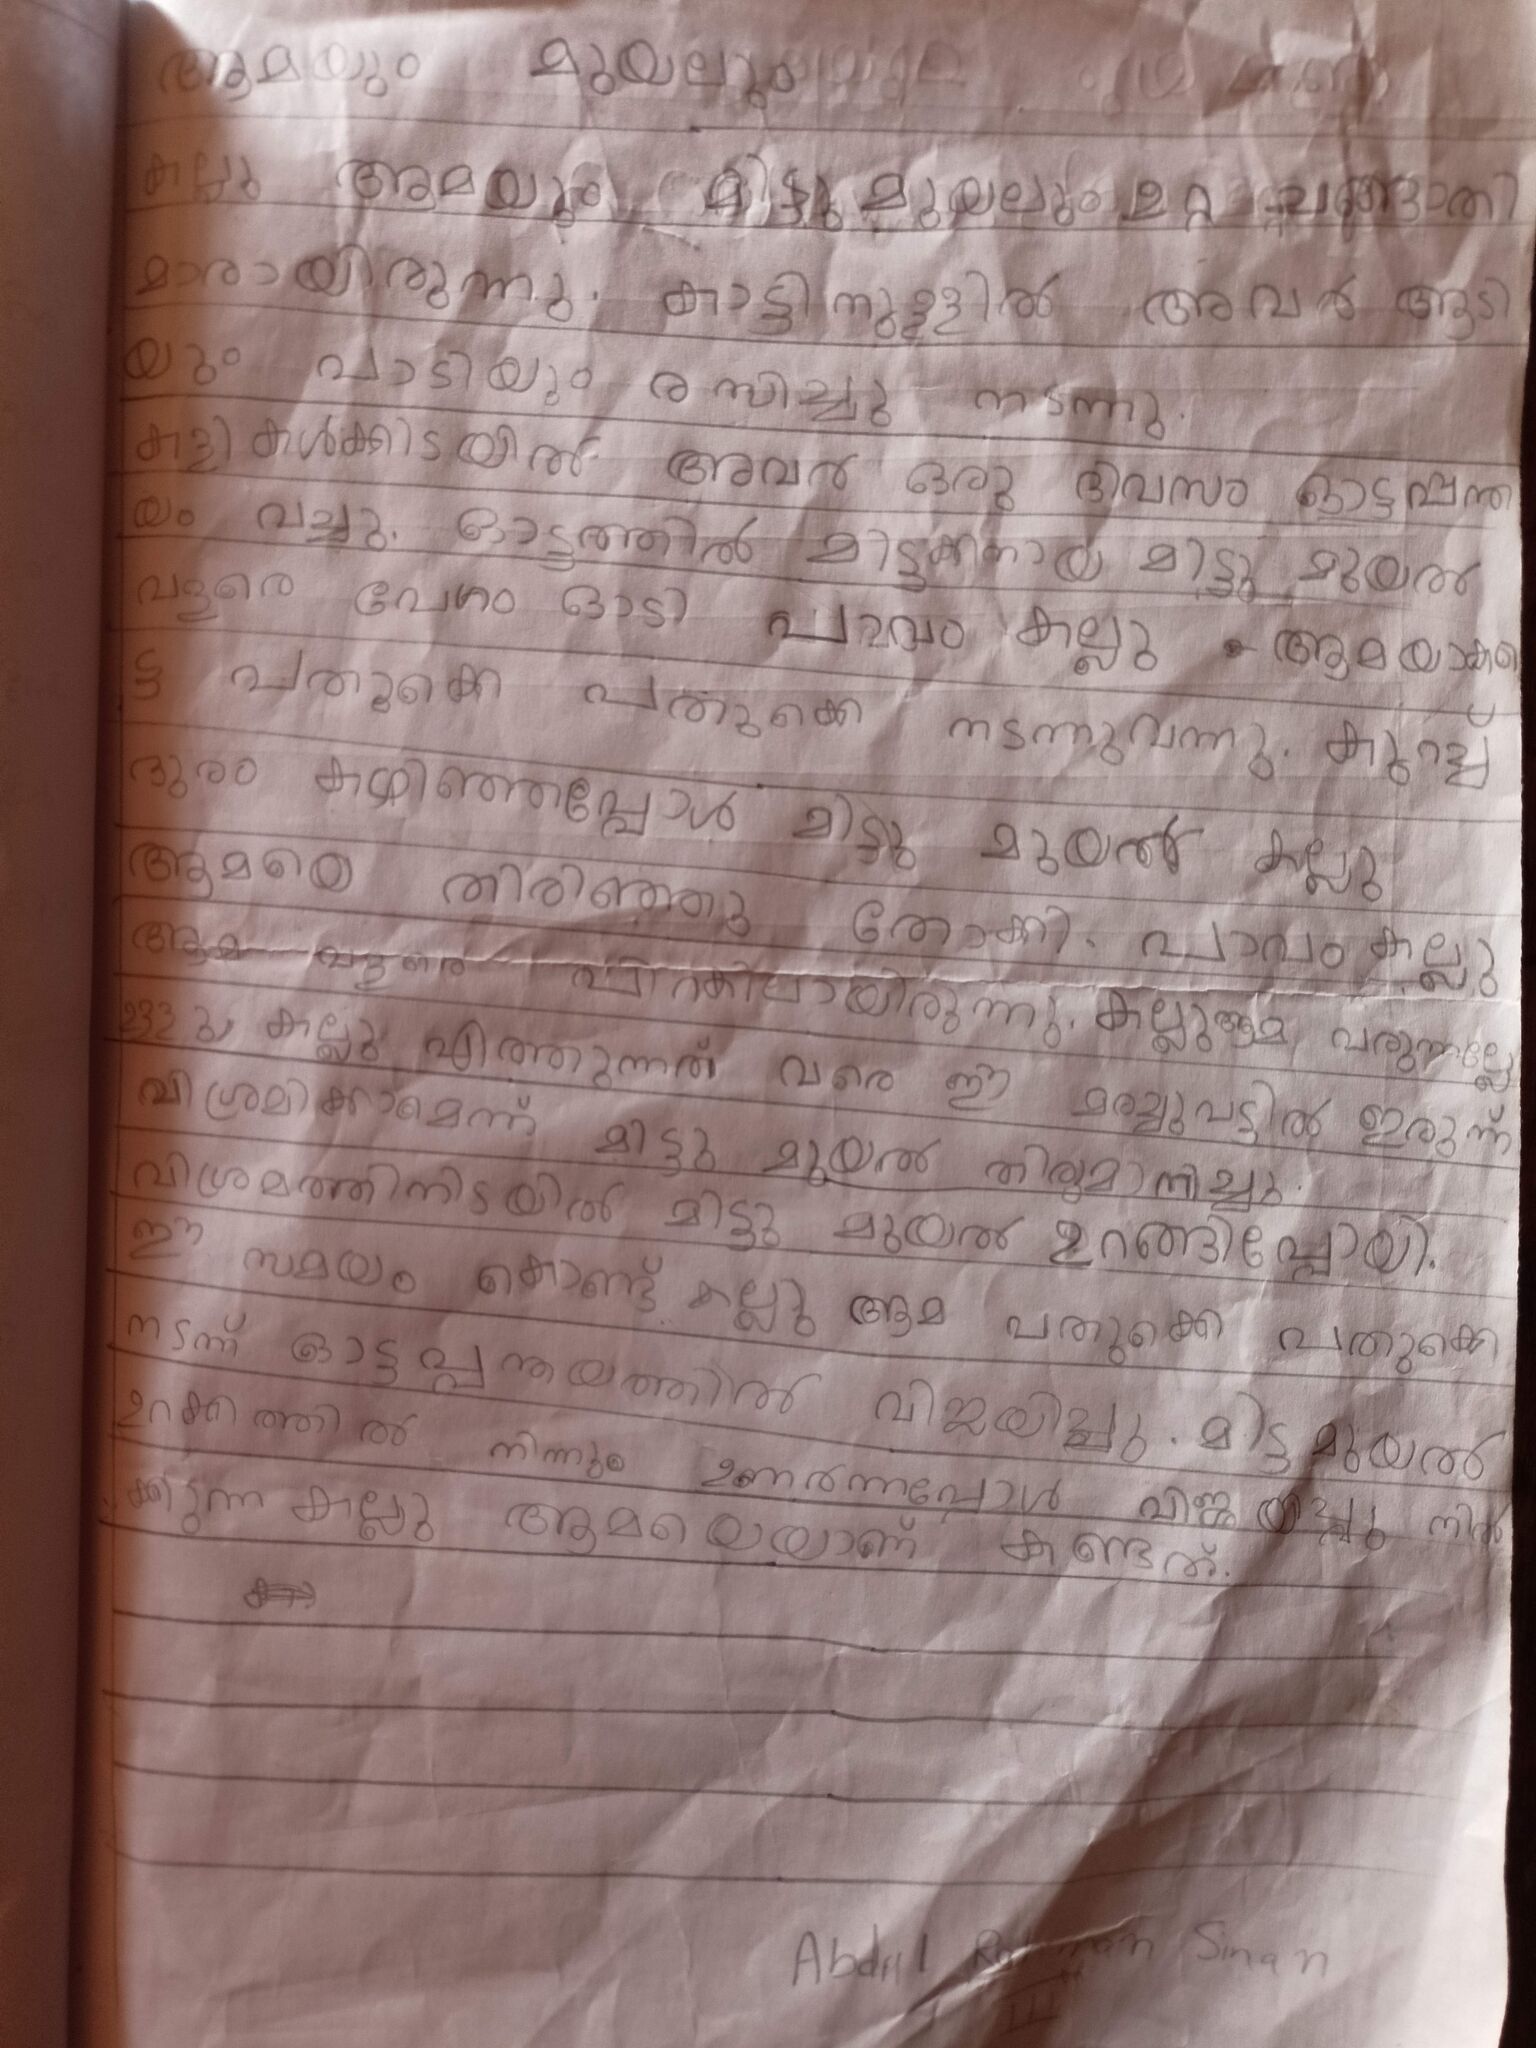 ആമയും മുയലും
കല്ലു ആമയും മിട്ടു മുയലും ഉറ്റ ചങ്ങാതി
മാരായിരുന്നു. കാട്ടിനുള്ളിൽ അവർ ആടി
യും പാടിയും രസിച്ചു നടന്നു.
കളികൾക്കിടയിൽ അവർ ഒരു ദിവസം ഓട്ടപ്പന്ത
യം വച്ചു. ഓട്ടത്തിൽ മിടുക്കനായ മിട്ടു മുയൽ
വളരെ വേഗം ഓടി പാവം കല്ലു ആമയാകട്ടെ
ട്ട പതുക്കെ പതുക്കെ നടന്നുവന്നു. കുറച്ച്
ദൂരം കഴിഞ്ഞപ്പോൾ മിട്ടു മുയൽ കല്ലു
ആമയെ തിരിഞ്ഞു നോക്കി. പാവം കല്ലു
ആമ വളരെ പിറകിലായിരുന്നു. കല്ലുആമ വരുന്നല്ലേ
ഉള്ളു, കല്ലു എത്തുന്നത് വരെ ഈ മരച്ചുവട്ടിൽ ഇരുന്ന്
വിശ്രമിക്കാമെന്ന് മിട്ടു മുയൽ തിരുമാനിച്ചു.
വിശ്രമത്തിനിടയിൽ മിട്ടു മുയൽ ഉറങ്ങിപ്പോയി.
ഈ സമയം കൊണ്ട് കല്ലു ആമ പതുക്കെ പതുക്കെ
നടന്ന് ഓട്ടപ്പന്തയത്തിൽ വിജയിച്ചു. മിട്ടു മുയൽ
ഉറക്കത്തിൽ നിന്നും ഉണർന്നപ്പോൾ വിജയിച്ചു നിൽ
ക്കുന്ന കല്ലു ആമയെയാണ് കണ്ടത്.
Abdul Rahman Sinan
III